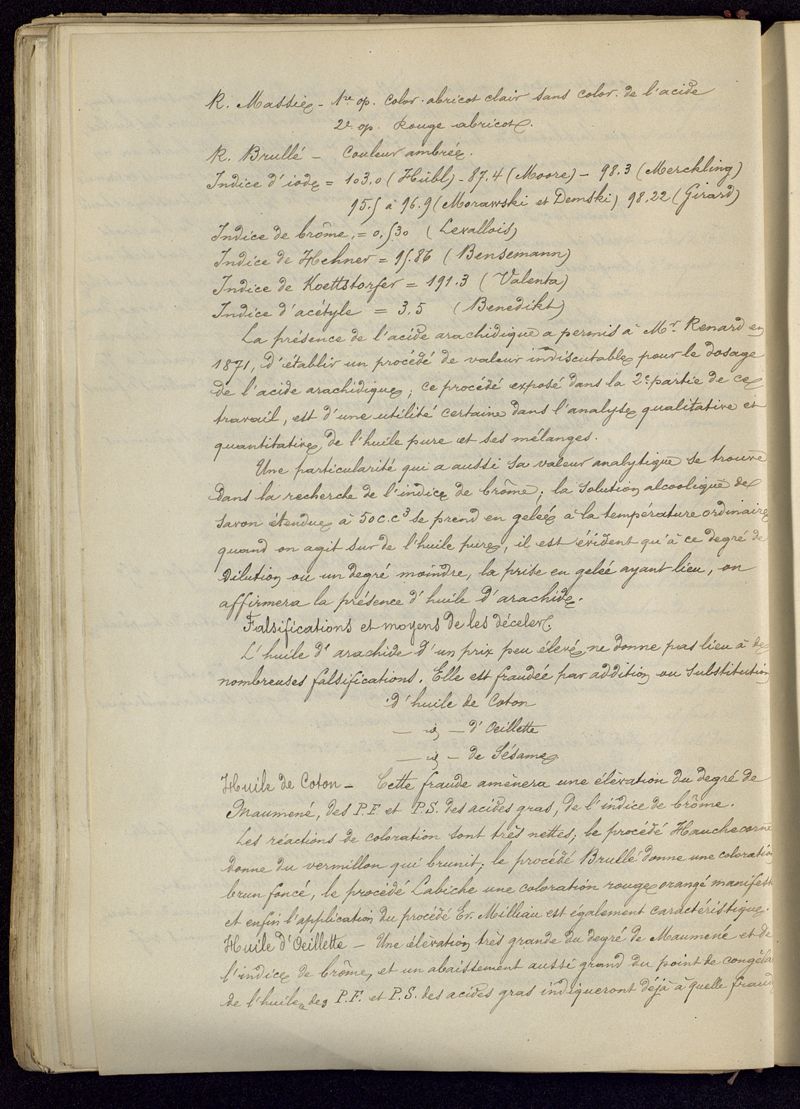 R. Massie - 1re op. Color. abricot clair sans color. de l'acide
2e op. Rouge abricot.
R. Brullé - Couleur ambrée.
Indice d'iode = 103,0 (Hübl) - 87.4 (Moore) - 98.3 (Merckling)
95.5 à 96.9 (Morawski et Demski) 98,22 (Girard)
Indice de brôme = 0,530 (Levallois)
Indice de Hehner = 95.86 (Bensemann)
Indice de Koettstorfer = 191.3 (Valenta)
Indice d'acétyle = 3,5 (Benedikt)
La présence de l'acide arachidique a permis à Mr. Renard en
1871, d'établir un procédé de valeur indiscutable pour le dosage
de l'acide arachidique; ce procédé exposé dans la 2e partie de ce
travail, est d'une utilité certaine dans l'analyse qualitative et
quantitative de l'huile pure et ses mélanges.
Une particularité qui a aussi sa valeur analytique se trouve
dans la recherche de l'indice de brôme; la solution alcoolique de
savon étendue à 50 c.c³ se prend en gelée à la température ordinaire
quand on agit sur de l'huile pure, il est évident qu'à ce degré de
dilution ou un degré moindre, la prise en gelée ayant lieu, on
affirmera la présence d'huile d'arachide.
Falsifications et moyens de les déceler.
L'huile d'arachide d'un prix peu élevé ne donne pas lieu à de
nombreuses falsifications. Elle est fraudée par addition ou substitution
d'huile de Coton
— id — d'Oeillette
— id — de Sésame
Huile de Coton - Cette fraude amènera une élèvation du degré de
Maumené, des P.F. et P.S. des acides gras, de l'indice de brôme.
Les réactions de coloration sont très nettes, le procédé Hauchecorne
donne du vermillon qui brunit; le procédé Brullé donne une coloration
brun foncé, le procédé Labiche une coloration rouge orangé manifeste
et enfin l'application du procédé Er. Milliau est également caractéristique.
Huile d'Oeillette - Une élèvation très grande du degré de Maumené et de
l'indice de brôme, et un abaissement aussi grand du point de congéla
de l'huile, des P.F. et P.S. des acides gras indiqueront déjà à quelle fraud